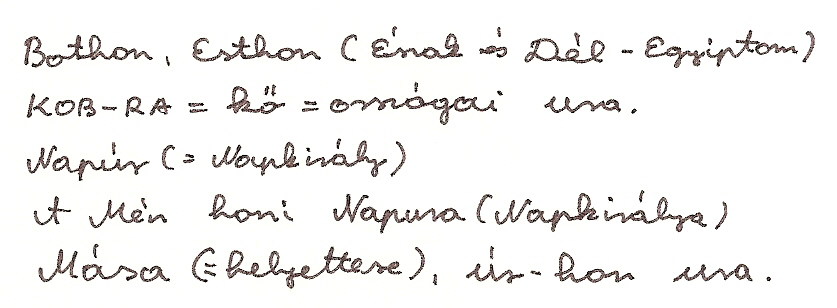 Bothon, Esthon (Énak és Dél-Egyiptom)
KOB-RA = kő = omógai ura.
Napúr (= Napkirály)
A Mén honi Napura (Napkirálya)
Mása (= helyettese), úr-hon ura.